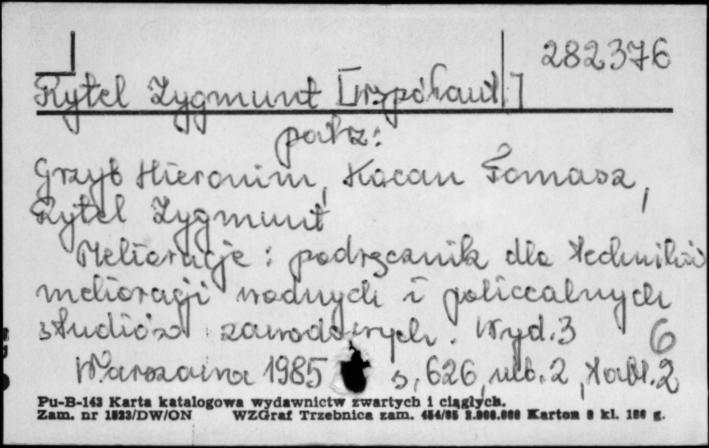 282376
Rytel Zygmunt [współaut.]
patrz:
Grzyb Hieronim, Kacan Tomasz,
Rytel Zygmunt
Melioracje : podręcznik dla techników
melioracji wodnych i policealnych
studiów zawodowych. Wyd. 3 6
Warszawa 1985 s. 626, nlb. 2, tabl. 2
Pu-B-143 Karta katalogowa wydawnictw zwartych i ciągłych.
Zam. nr 1523/DW/ON WZGraf Trzebnica zam. 454/85 2.000.000 Karton 8 kl. 180 g.